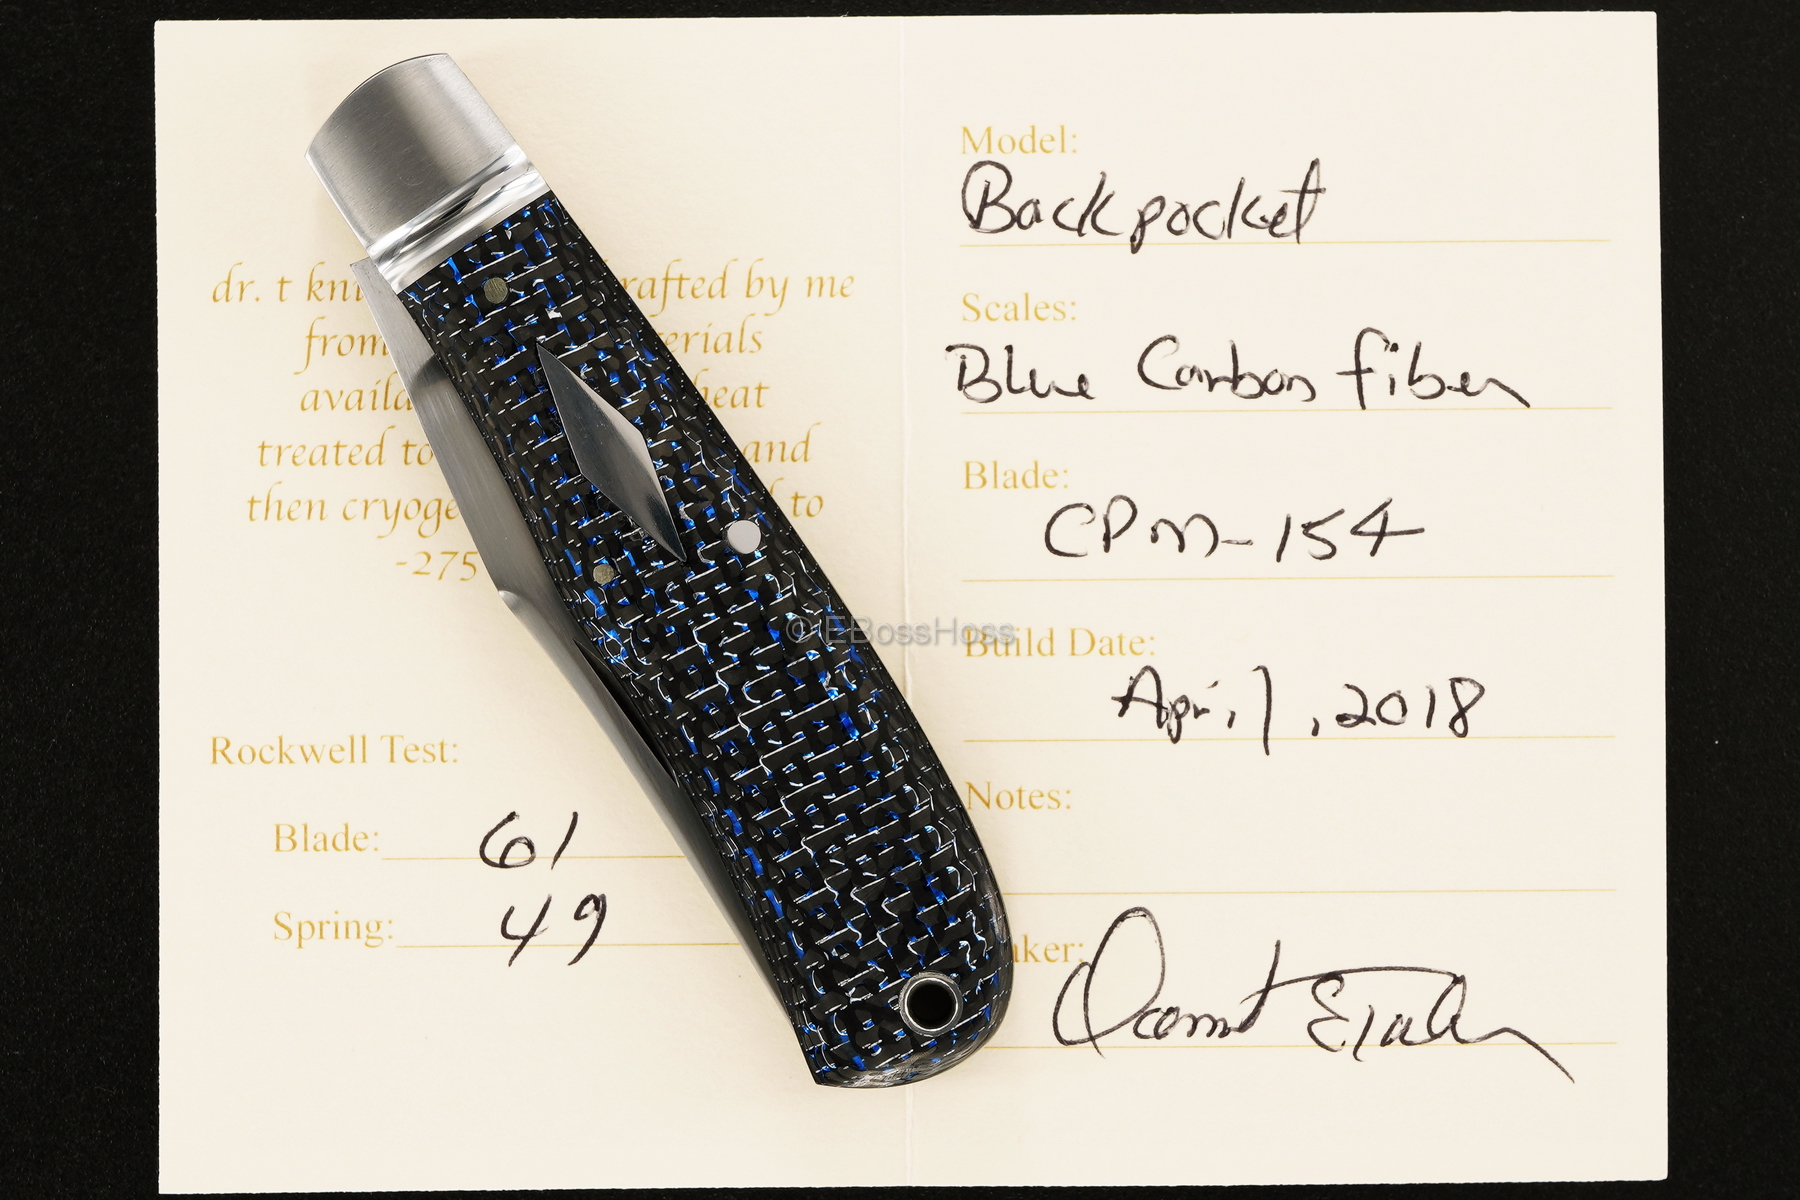 dr. t kni rafted by me
from erials
availa heat
treated to and
then cryoge to
-275
Rockwell Test:
Blade: 61
Spring: 49
Model:
Backpocket
Scales:
Blue Carbon fiber
Blade:
CPM-154
Build Date:
April, 2018
Notes:
aker:
© EBossHoss